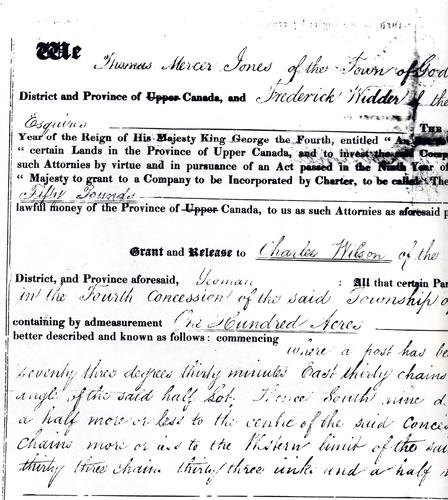 We
Thomas Mercer Jones of the Town of God
District and Province of Upper Canada, and Frederick Widder of the
Esquires THE
Year of the Reign of His Majesty King George the Fourth, entitled " An
" certain Lands in the Province of Upper Canada, and to invest the said Comp
such Attornies by virtue and in pursuance of an Act passed in the Ninth Year of
" Majesty to grant to a Company to be Incorporated by Charter, to be called The
Fifty Pounds
lawful money of the Province of Upper Canada, to us as such Attornies as aforesaid p
Grant and Release to Charles Wilson of the
District, and Province aforesaid, Yeoman : All that certain Par
in the Fourth Concession of the said Township o
containing by admeasurement One Hundred Acres
better described and known as follows: commencing
where a post has be
seventy three degrees thirty minutes East thirty chains
angle of the said half Lot. Thence South nine d
a half more or less to the centre of the said Conces
chains more or less to the Western limit of the sai
thirty three chains thirty three links and a half m